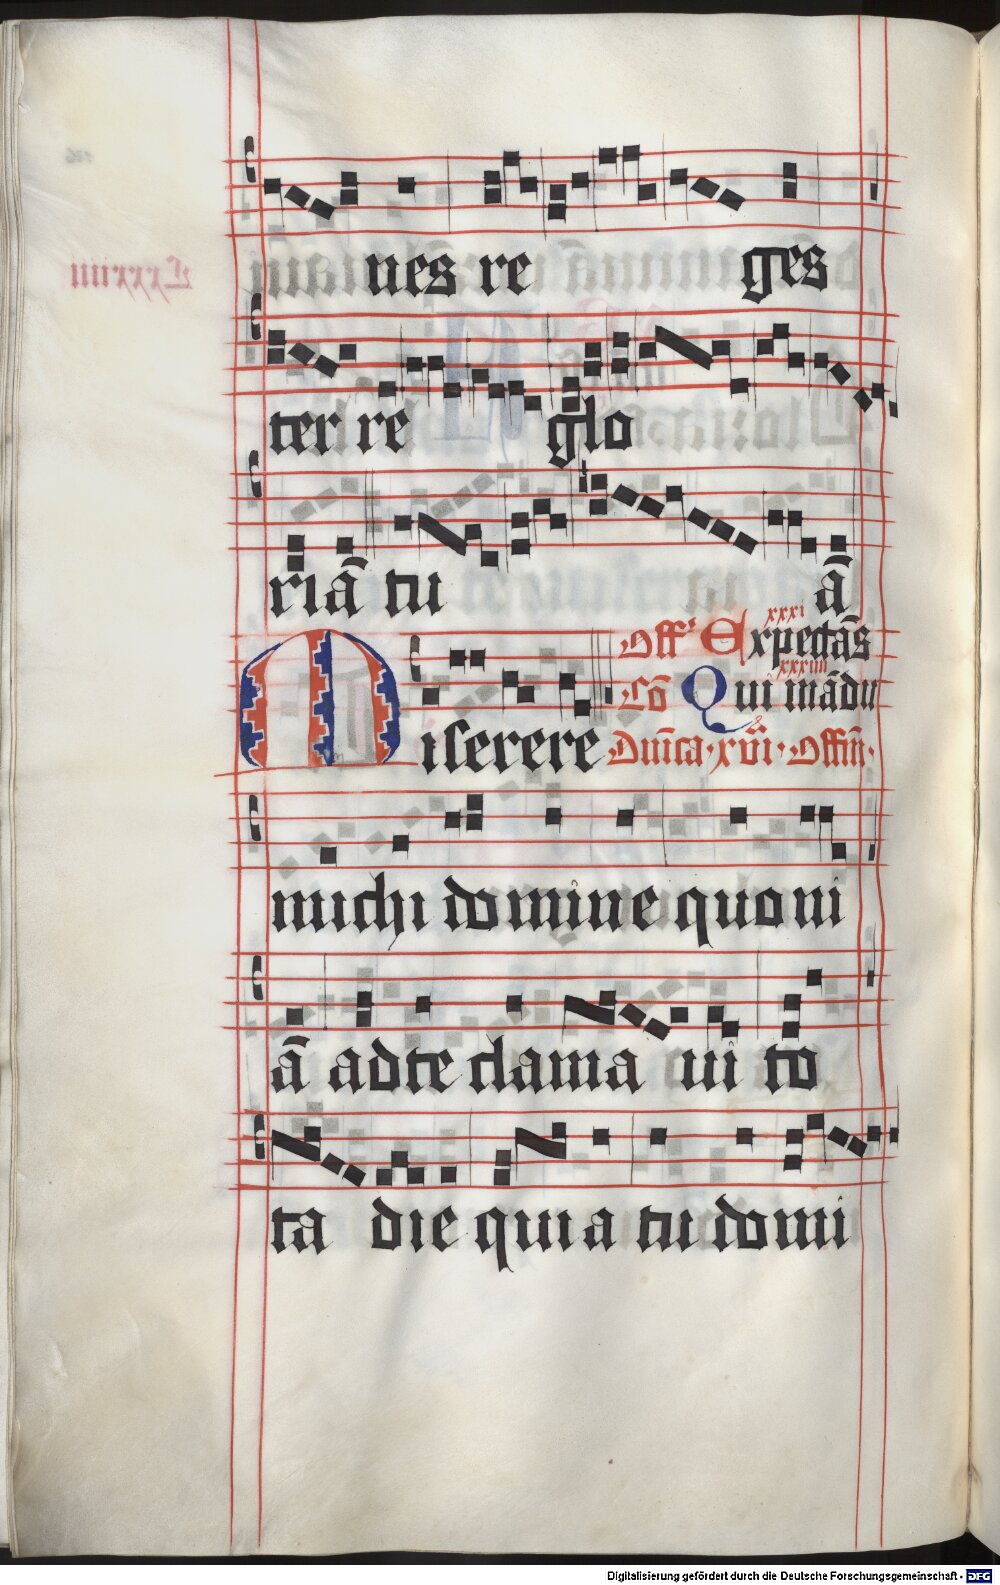 nes re ges
ter re glo
riā tu ā
Off' Expectās xxxi
Cō Qui mādu xxxiiii
Miserere Dn̄ica·xvi·Offm̄·
michi domine quoni
ā ad te clama ui to
ta die quia tu domi
Digitalisierung gefördert durch die Deutsche Forschungsgemeinschaft - DFG